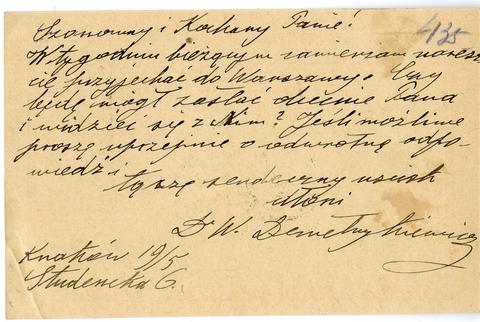 Szanowny i Kochany Panie!
435
W tygodniu bieżącym zamierzam naresz
cie przyjechać do Warszawy. Czy
będę mógł zastać
Pana
i widzieć się z Nim? Jeśli możliwe
proszę uprzejmie o odwrotną odpo-
wiedź i
łączę serdeczny uścisk
dłoni
Dr W. Demetrykiewicz
Kraków 19/5
Studencka 6.